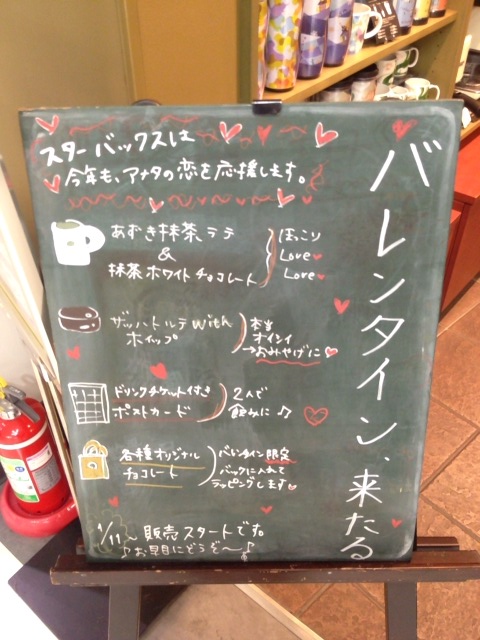 バレンタイン、来たる
スターバックスは
今年も、アナタの恋を応援します。
あずき抹茶ラテ
&
抹茶ホワイトチョコレート
ほっこり
Love
Love
ザッハトルテwith
ホイップ
本当
オイシイ
→おみやげに
ドリンクチケット付き
ポストカード
2人で
飲みに♪
各種オリジナル
チョコレート
バレンタイン限定
バックに入れて
ラッピングします
1/11〜販売スタートです。
♪お早目にどうぞ〜♪